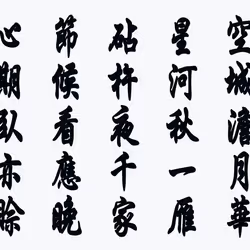 空城澹月華
星河秋一雁
砧杵夜千家
節候看應晚
心期臥亦賒